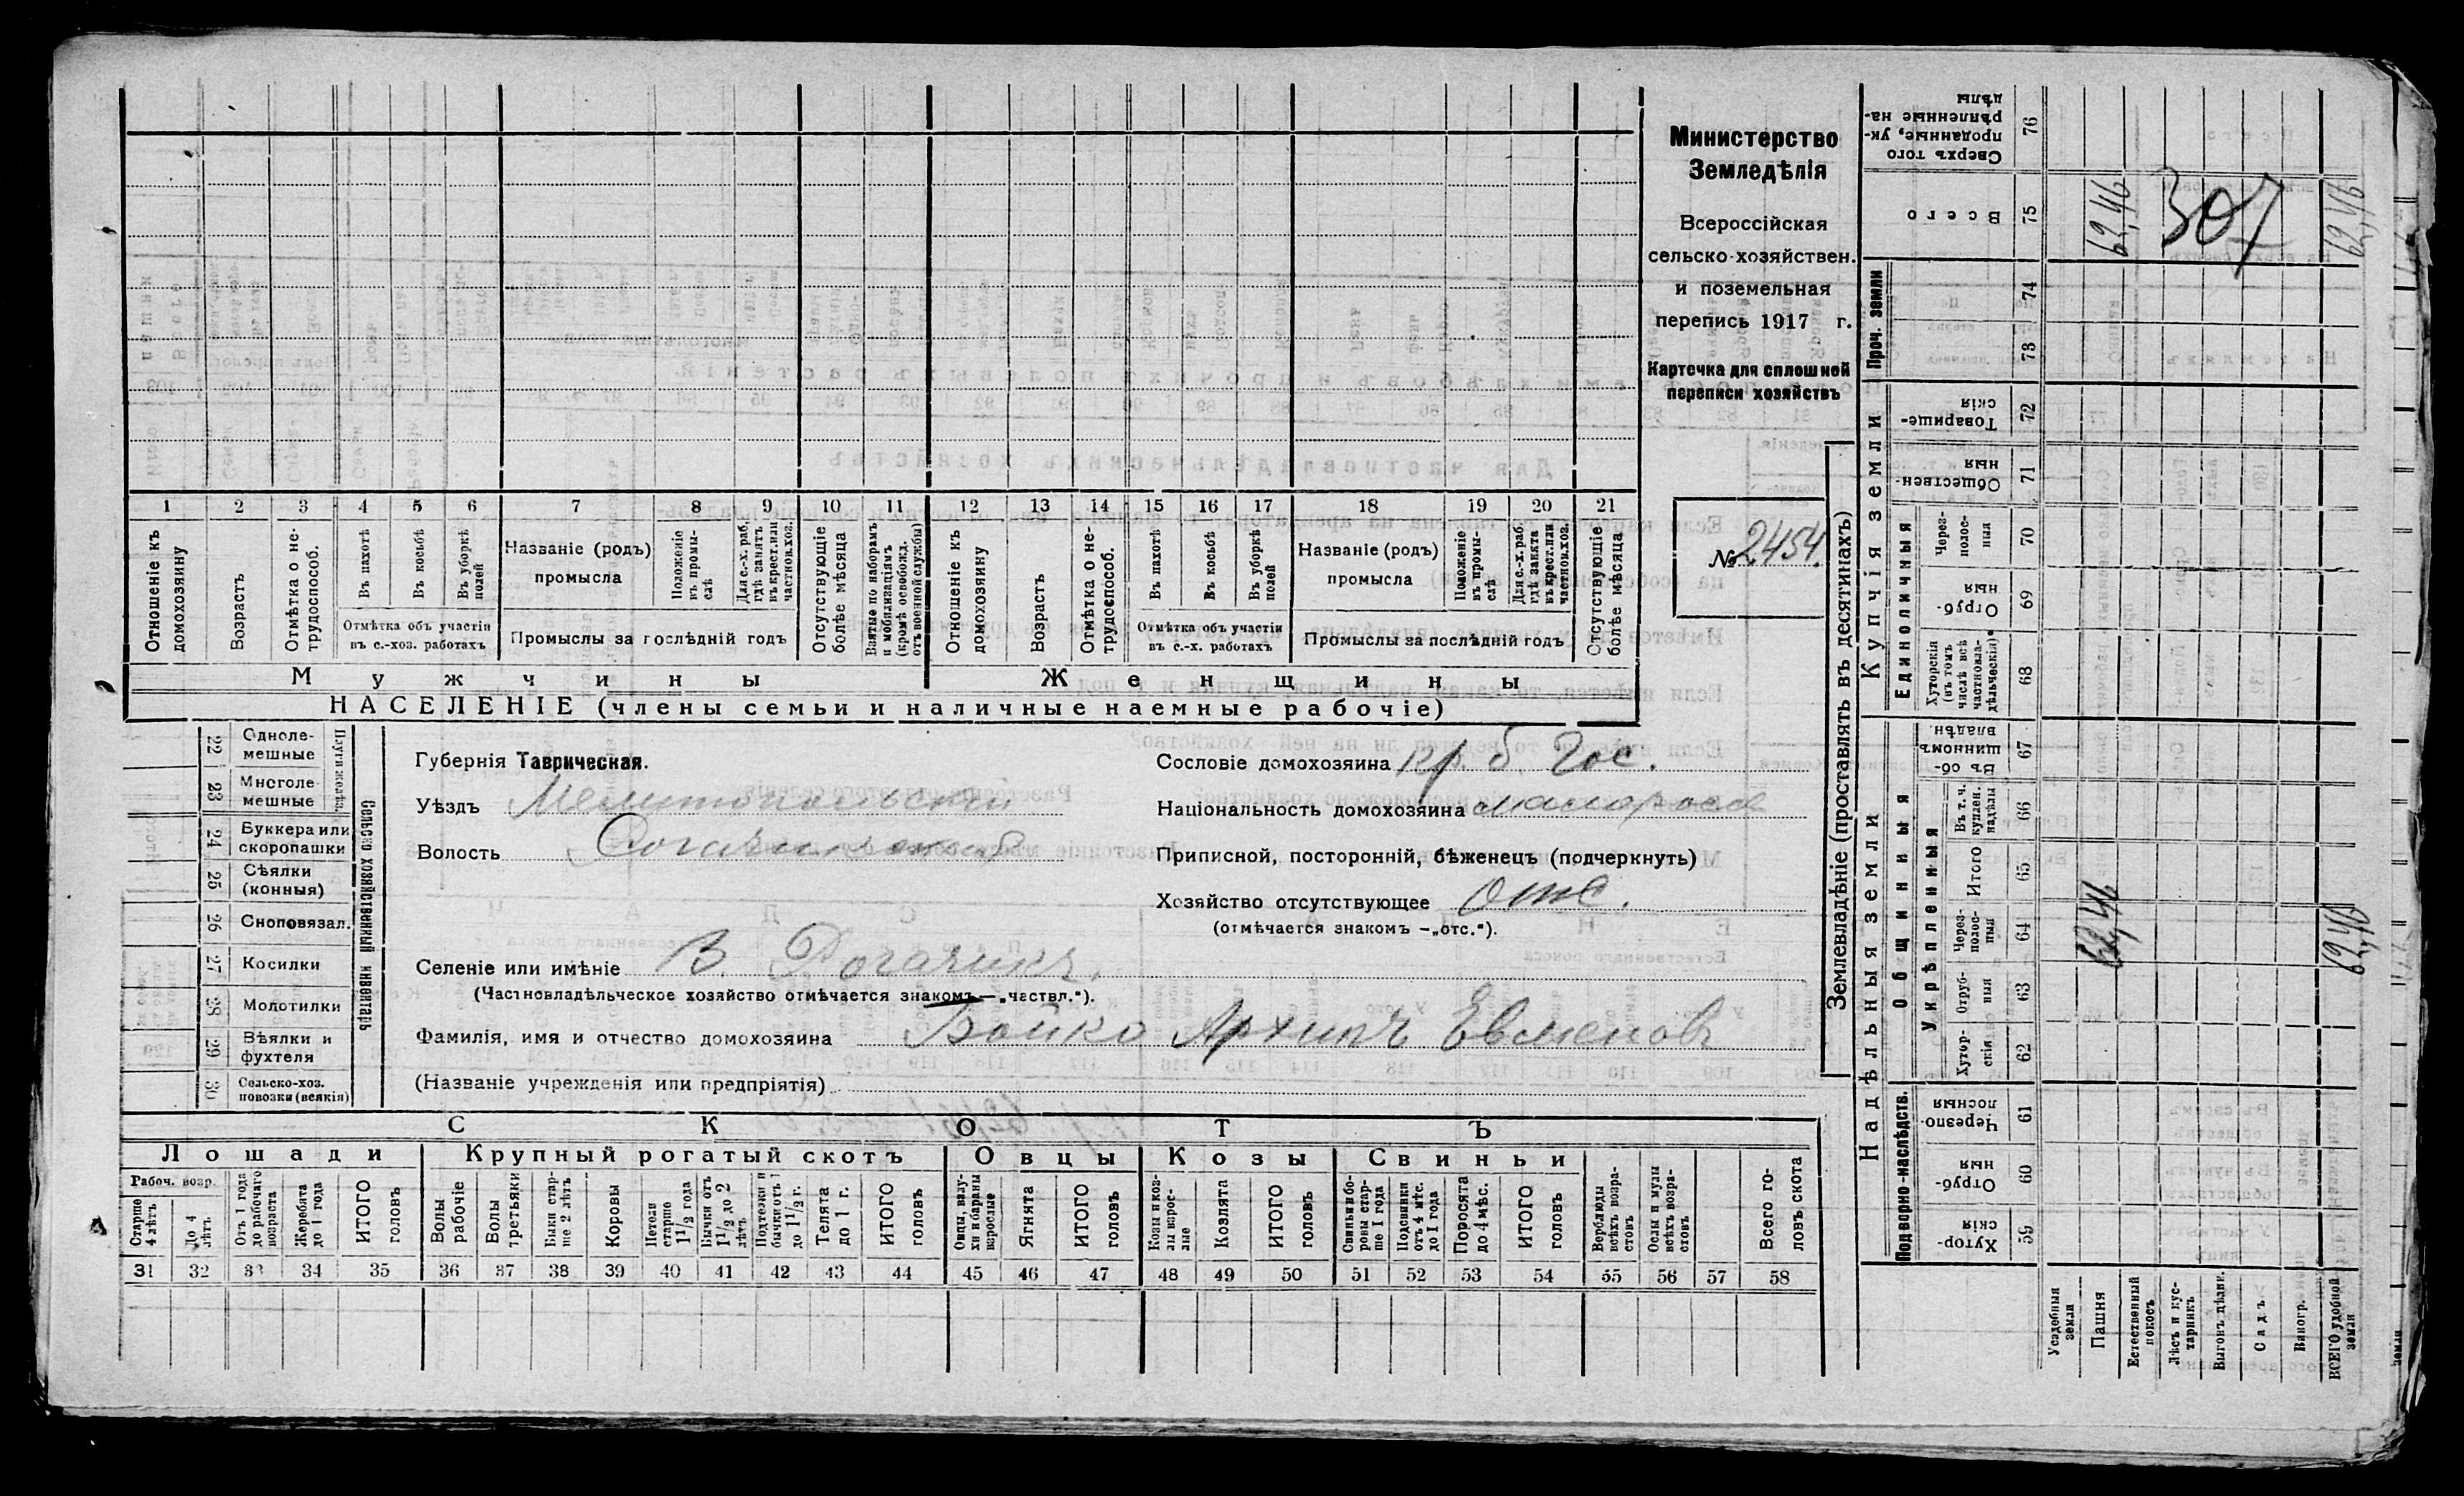 Министерство
Земледѣлія
Всероссійская
сельско-хозяйствен.
и поземельная
перепись 1917 г.
Карточка для сплошной
переписи хозяйствъ
№ 2454.
1 2 3 4 5 6 7 8 9 10 11 12 13 14 15 16 17 18 19 20 21
Отношеніе къ домохозяину
Возрастъ
Отмѣтка о не-трудоспособ.
Въ пахотѣ
Въ косьбѣ
Въ уборкѣ полей
Отмѣтка объ участіи въ с.-хоз. работахъ
Названіе (родъ) промысла
Положеніе въ промы-слѣ
Для с.-х. раб. гдѣ занятъ въ крест. или частнов. хоз.
Промыслы за послѣдній годъ
Отсутствующіе болѣе мѣсяца
Взятые по наборамъ и мобилизаціямъ (кромѣ освобожд. отъ военной службы)
Отношеніе къ домохозяину
Возрастъ
Отмѣтка о не-трудоспособ.
Въ пахотѣ
Въ косьбѣ
Въ уборкѣ полей
Отмѣтка объ участіи въ с.-х. работахъ
Названіе (родъ) промысла
Положеніе въ промы-слѣ
Для с.-х. раб. гдѣ занята въ крест. или частнов. хоз.
Промыслы за послѣдній годъ
Отсутствующіе болѣе мѣсяца
Мужчины Женщины
НАСЕЛЕНІЕ (члены семьи и наличные наемные рабочіе)
22 Однолемешные
23 Многолемешные
24 Буккера или скоропашки
25 Сѣялки (конныя)
26 Сноповязал.
27 Косилки
28 Молотилки
29 Вѣялки и фухтеля
30 Сельско-хоз. повозки (всякія)
Сельско хозяйственный инвентарь
Губернія Таврическая.
Уѣздъ Мелитопольскій
Волость
Сословіе домохозяина кр. б. Гос.
Національность домохозяина малоросс
Приписной, посторонній, бѣженецъ (подчеркнуть)
Хозяйство отсутствующее отс.
(отмѣчается знакомъ —„отс.“).
Селеніе или имѣніе В. Рогачикъ.
(Частновладѣльческое хозяйство отмѣчается знакомъ—„частвл.“).
Фамилія, имя и отчество домохозяина Бойко Архипъ Евменовъ
(Названіе учрежденія или предпріятія)
СКОТЪ
Лошади Крупный рогатый скотъ Овцы Козы Свиньи
Рабоч. возр.
Старше 4 лѣтъ
До 4 лѣтъ
Отъ 1 года до рабочаго возраста
Жеребята до 1 года
ИТОГО головъ
Волы рабочіе
Волы третьяки
Быки стар-ше 2 лѣтъ
Коровы
Нетели старше 1 1/2 года
Бычки отъ 1 1/2 до 2 лѣтъ
Подтелки и бычки отъ 1 до 1 1/2 г.
Телята до 1 г.
ИТОГО головъ
Овцы, валу-хи и бараны взрослые
Ягнята
ИТОГО головъ
Козы и коз-лы взрос-лые
Козлята
ИТОГО головъ
Свиньи и бо-ровы стар-ше 1 года
Подсвинки отъ 4 мѣс. до 1 года
Поросята до 4 мѣс.
ИТОГО головъ
Верблюды всѣхъ возра-стовъ
Ослы и мулы всѣхъ возра-стовъ
Всего го-ловъ скота
31 32 33 34 35 36 37 38 39 40 41 42 43 44 45 46 47 48 49 50 51 52 53 54 55 56 57 58
Землевладѣніе (проставлять въ десятинахъ)
Сверхъ того проданные, ук-рѣпленные на-дѣлы 76
Всего 75
Проч. земли 74 73
Купчія земли
Товарище-скія 72
Обществен-ныя 71
Единоличныя
Через-полос-ныя 70
Отруб-ныя 69
Хуторскія (въ томъ числѣ всѣ частновла-дѣльческія) 68
Надѣльныя земли
Общинныя
Въ об-щинномъ владѣн. 67
Укрѣпленныя
Въ т. ч. куплен. надѣлы 66
Итого 65
Через-полос-ныя 64
Отруб-ныя 63
Хутор-скія 62
Подворно-наслѣдств.
Черезпо-лосныя 61
Отруб-ныя 60
Хутор-скія 59
Усадебныя земли
Пашня 62,46 62,46
Естественный покосъ
Лѣсъ и кус-тарникъ
Выгонъ дѣлян.
Садъ
Виногр.
ВСЕГО удобной земли 62,46 62,46
307